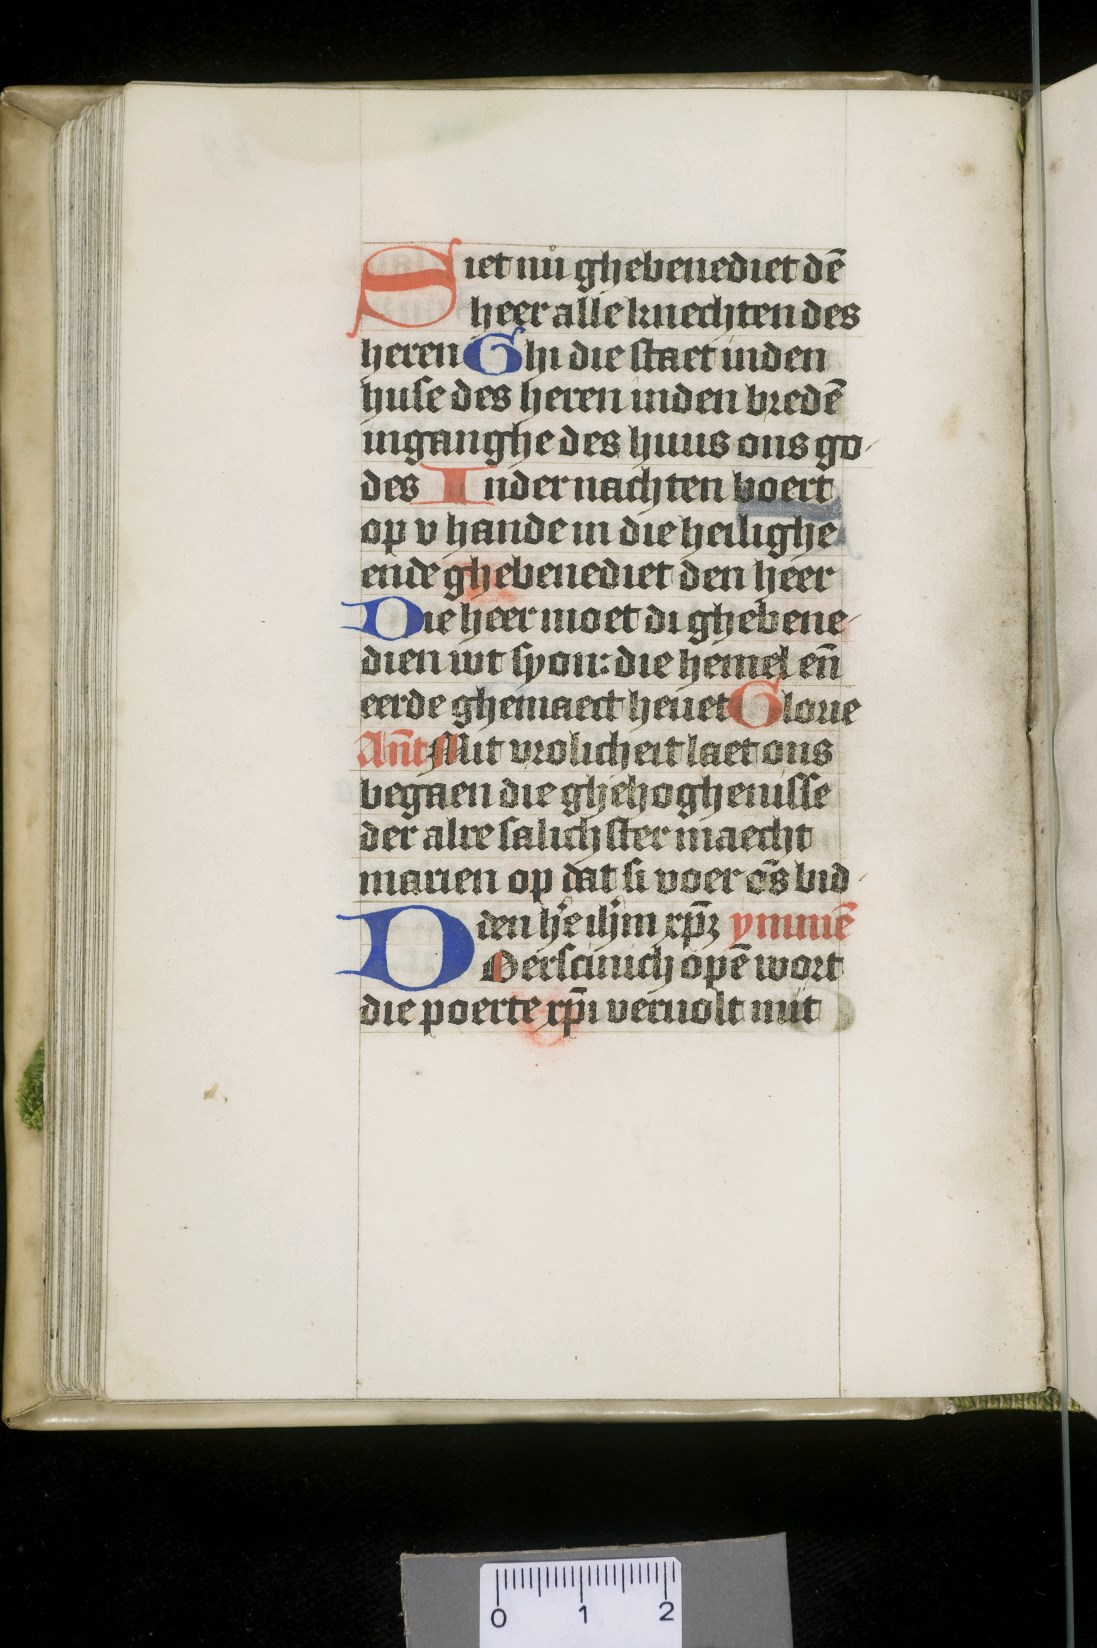 Siet nu ghebenediet dē
heer alle knechten des
heren Ghi die staet inden
huse des heren inden vredē
inganghe des huus ons go
des Inder nachten boert
op v hande in die heilighe
ende ghebenediet den heer
Die heer moet di ghebene
dien wt syon: die hemel eñ
eerde ghemaect heuet Glorie
Ant Mit vrolicheit laet ons
begaen die ghehoghenisse
der alre salichster maecht
marien op dat si voer ōs bid
den here ihm xpm ymmē
Deerscinich opē wort
die poerte xpi veruolt mit
0 1 2